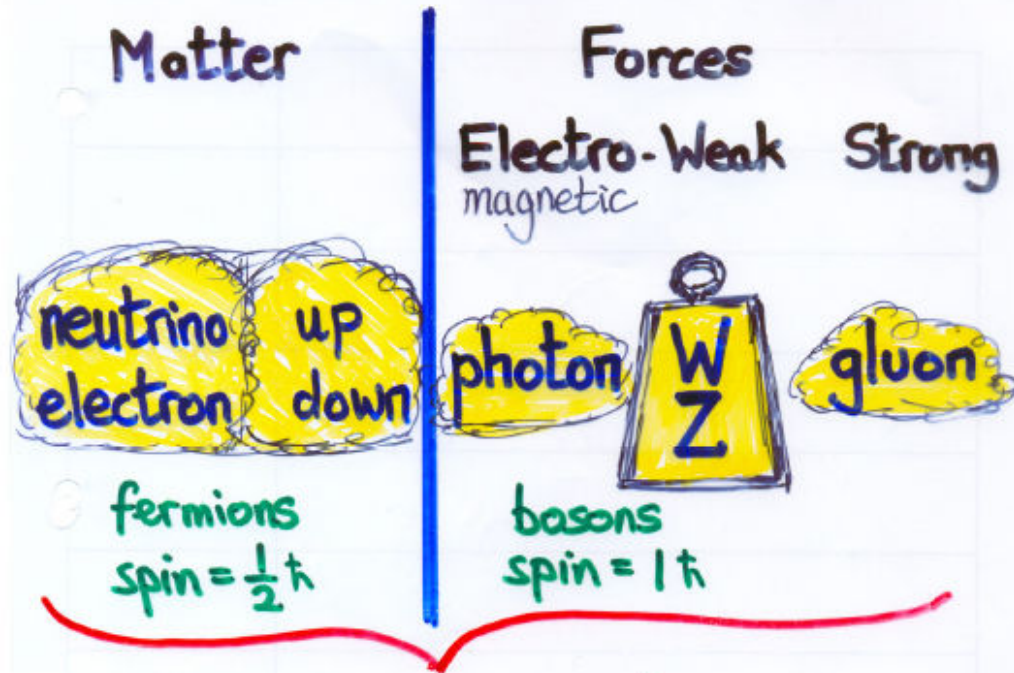 Matter
neutrino up
electron down
fermions
spin = 1/2 ħ
Forces
Electro-Weak Strong
magnetic
photon W gluon
Z
bosons
spin = 1 ħ